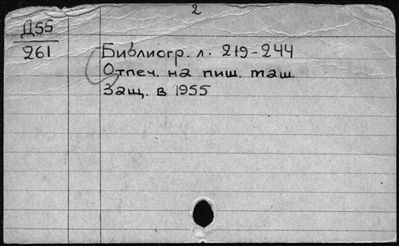 2
Д55
261
Библиогр. л. 219-244
Отпеч. на пиш. маш.
Защ. в 1955